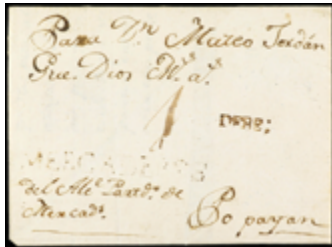 Para Dn. Mateo Terdán
Gue. Dios Ms. as.
MERCADERES
del Ale. Parto. de
Mercads.
Popayan